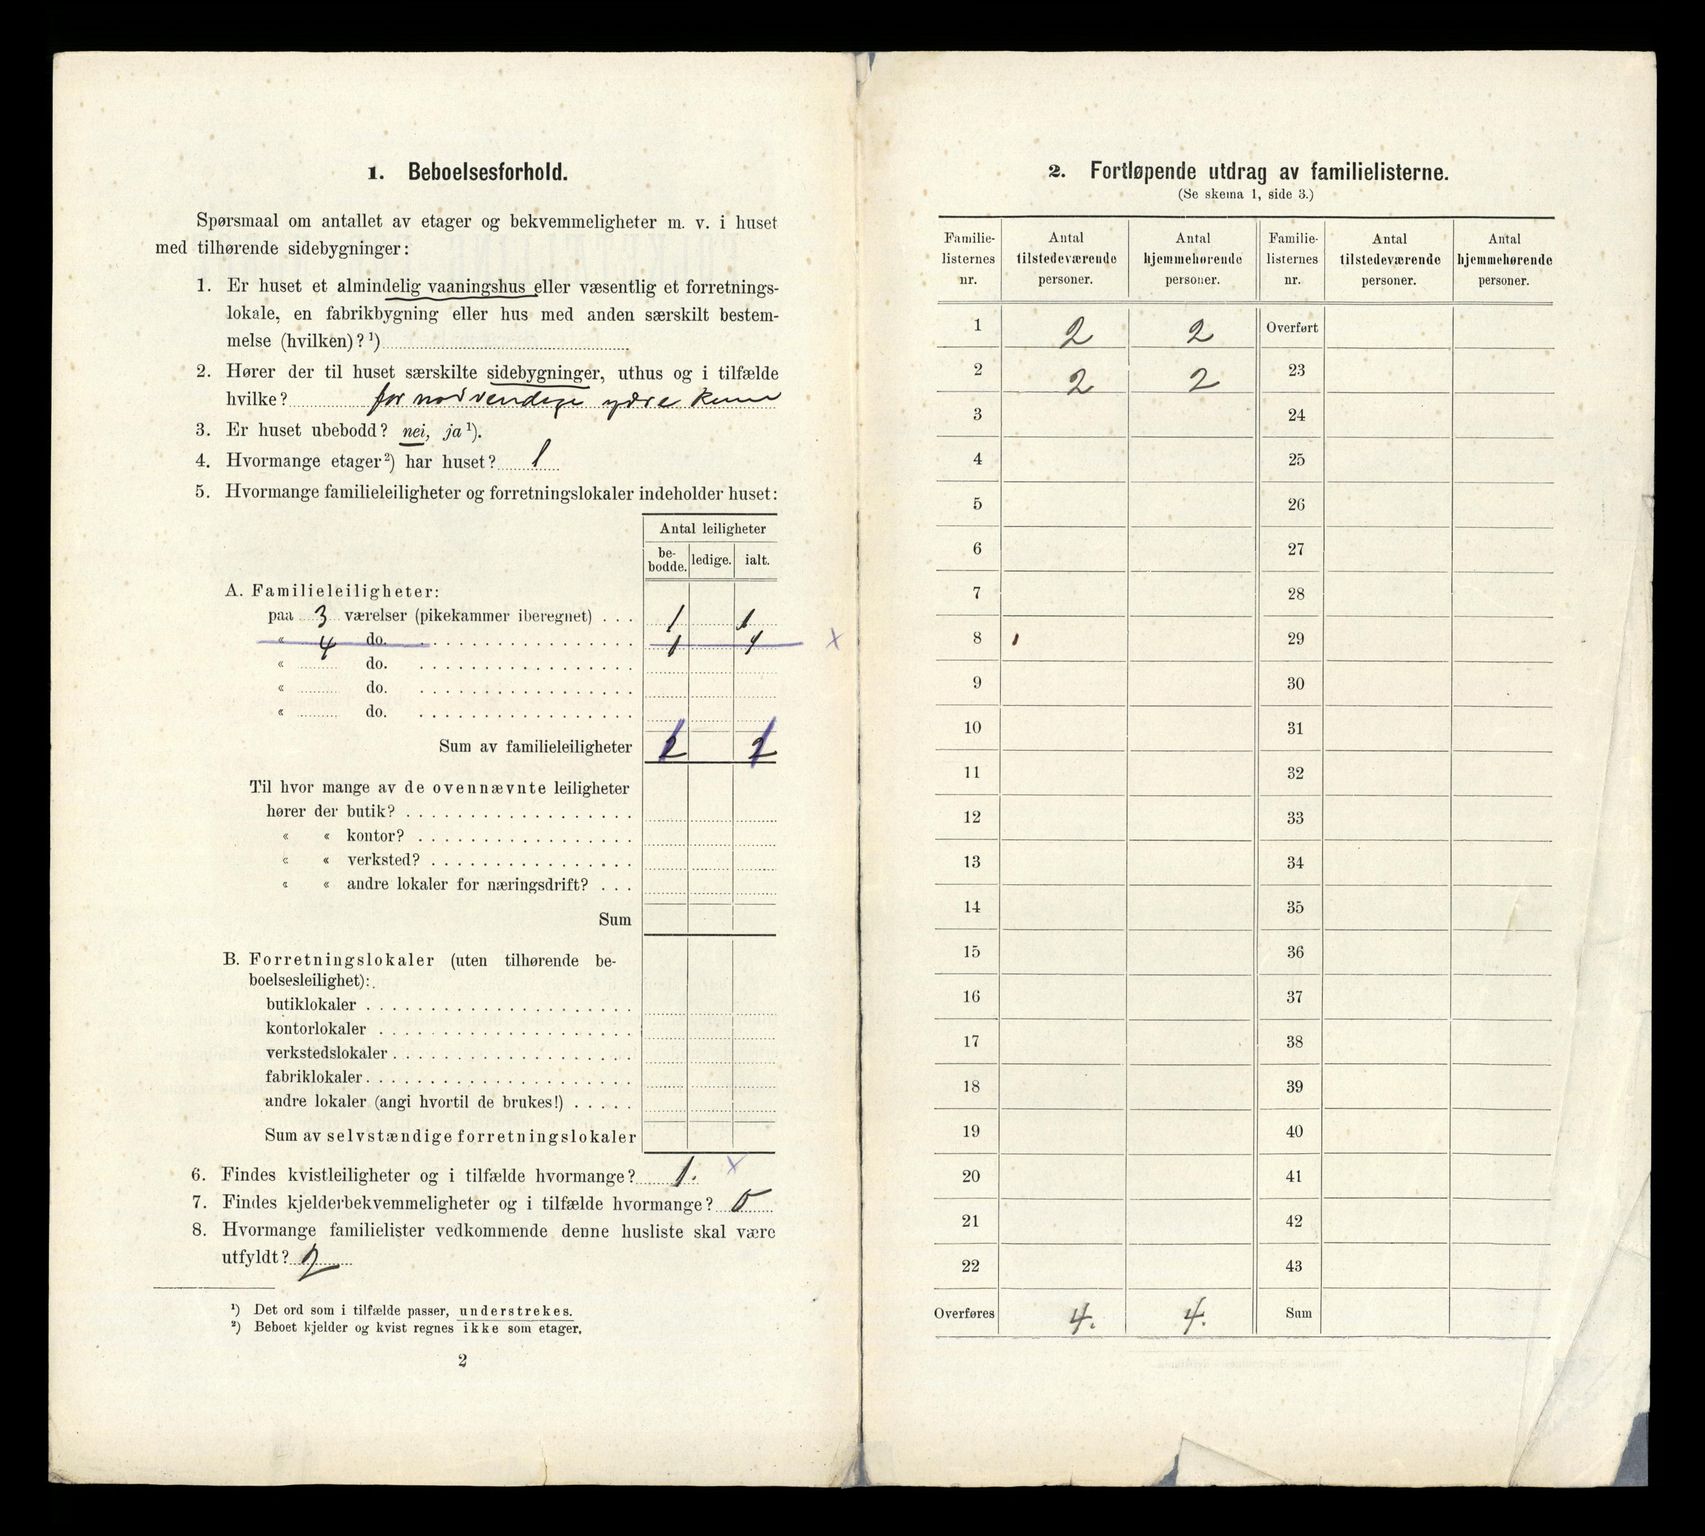 1. Beboelsesforhold.
Spørsmaal om antallet av etager og bekvemmeligheter m. v. i huset
med tilhørende sidebygninger:
1. Er huset et almindelig vaaningshus eller væsentlig et forretnings-
lokale, en fabrikbygning eller hus med anden særskilt bestem-
melse (hvilken)?¹)
2. Hører der til huset særskilte sidebygninger, uthus og i tilfælde
hvilke? for nødvendige ydre
3. Er huset ubebodd? nei, ja¹).
4. Hvormange etager²) har huset? 1
5. Hvormange familieleiligheter og forretningslokaler indeholder huset:
Antal leiligheter
be-
bodde. ledige. ialt.
A. Familieleiligheter:
paa 3 værelser (pikekammer iberegnet) . . . 1 1
« 4 do. 1 1 x
« do.
« do.
« do.
Sum av familieleiligheter 2 2
Til hvor mange av de ovennævnte leiligheter
hører der butik?
« « kontor?
« « verksted?
« « andre lokaler for næringsdrift? . . .
Sum
B. Forretningslokaler (uten tilhørende be-
boelsesleilighet):
butiklokaler
kontorlokaler
verkstedslokaler
fabriklokaler
andre lokaler (angi hvortil de brukes!)
Sum av selvstændige forretningslokaler
6. Findes kvistleiligheter og i tilfælde hvormange? 1. x
7. Findes kjelderbekvemmeligheter og i tilfælde hvormange? 0
8. Hvormange familielister vedkommende denne husliste skal være
utfyldt? 2
¹) Det ord som i tilfælde passer, understrekes.
²) Beboet kjelder og kvist regnes ikke som etager.
2
2. Fortløpende utdrag av familielisterne.
(Se skema 1, side 3.)
Familie- Antal Antal Familie- Antal Antal
listernes tilstedeværende hjemmehørende listernes tilstedeværende hjemmehørende
nr. personer. personer. nr. personer. personer.
1 2 2 Overført
2 2 2 23
3 24
4 25
5 26
6 27
7 28
8 29
9 30
10 31
11 32
12 33
13 34
14 35
15 36
16 37
17 38
18 39
19 40
20 41
21 42
22 43
Overføres 4. 4. Sum